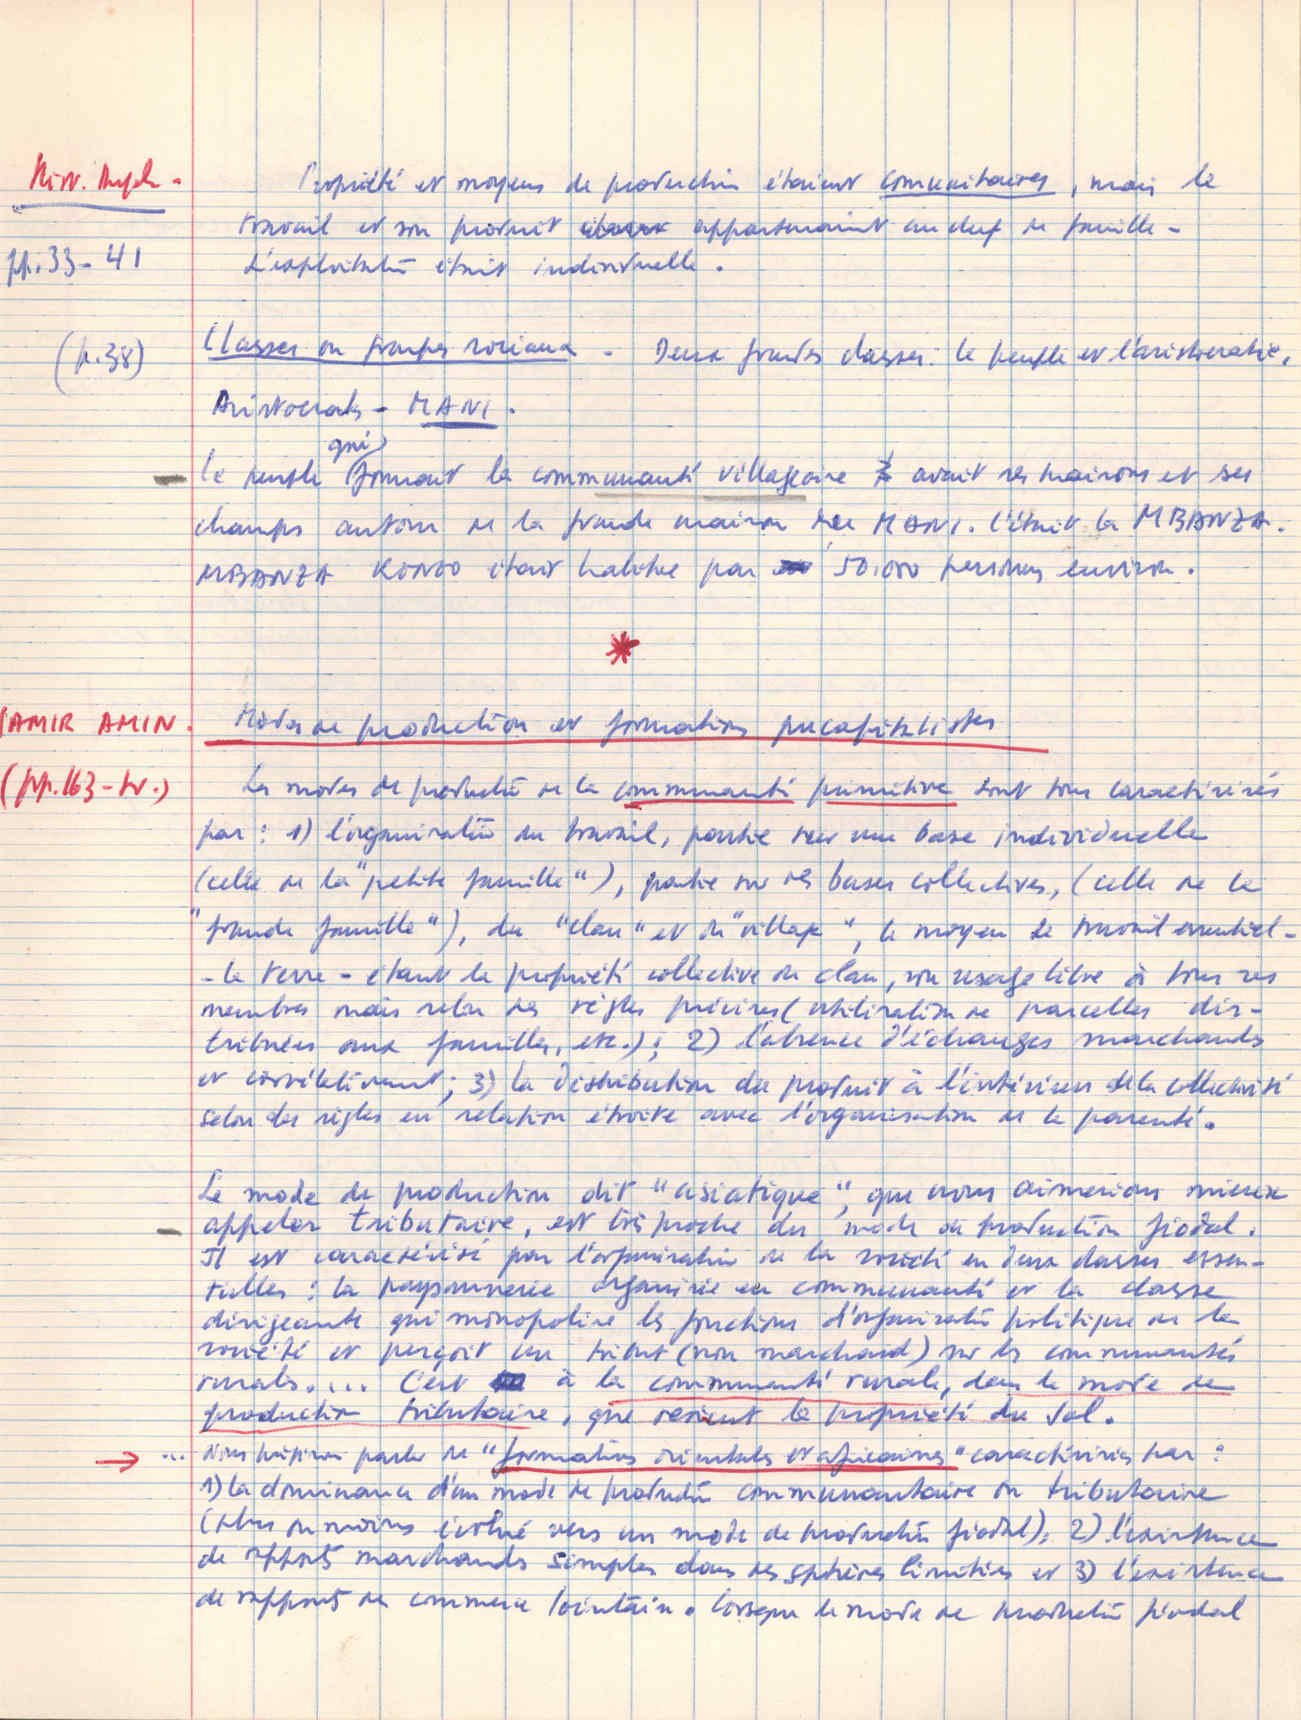 Hist. Angola -
Propriété et moyens de production étaient comunitaires, mais le
travail et son produit appartenaient au chef de famille -
pp. 33 - 41
L'exploitation était individuelle.
(p. 38)
Classes ou groupes sociaux - Deux grandes classes: le peuple et l'aristocratie.
Aristocrates - MANI.
qui
Le peuple formant la communauté villageoise avait ses maisons et ses
champs autour de la grande maison du MANI. C'était la MBANZA.
MBANZA KONGO était habitée par 50.000 personnes environ.
SAMIR AMIN.
Modes de production et formations précapitalistes
(pp. 163 - tr.)
Les modes de production de la communauté primitive sont tous caractérisés
par: 1) l'organisation du travail, partie sur une base individuelle
(celle de la "petite famille"), partie sur des bases collectives, (celle de la
"grande famille"), du "clan" et du "village", le moyen de travail essentiel -
- la terre - étant la propriété collective du clan, son usage libre à tous ses
membres mais selon des règles précises (utilisation de parcelles dis-
tribuées aux familles, etc.); 2) l'absence d'échanges marchands
et corrélativement; 3) la distribution du produit à l'intérieur de la collectivité
selon des règles en relation étroite avec l'organisation de la parenté.
Le mode de production dit "asiatique", que nous aimerions mieux
appeler tributaire, est très proche du mode de production féodal.
Il est caractérisé par l'organisation de la société en deux classes essen-
tielles: la paysannerie organisée en communauté et la classe
dirigeante qui monopolise les fonctions d'organisation politique de la
société et perçoit un tribut (non marchand) sur les communautés
rurales.... C'est à la communauté rurale, dans le mode de
production tributaire, que revient la propriété du sol.
→ ... Nous parler de "formations orientales et africaines" caractérisées par:
1) la dominance d'un mode de production communautaire ou tributaire
(plus ou moins évolué vers un mode de production féodal); 2) l'existence
de rapports marchands simples dans des sphères limitées et 3) l'existence
de rapports de commerce lointain. Lorsque le mode de production féodal